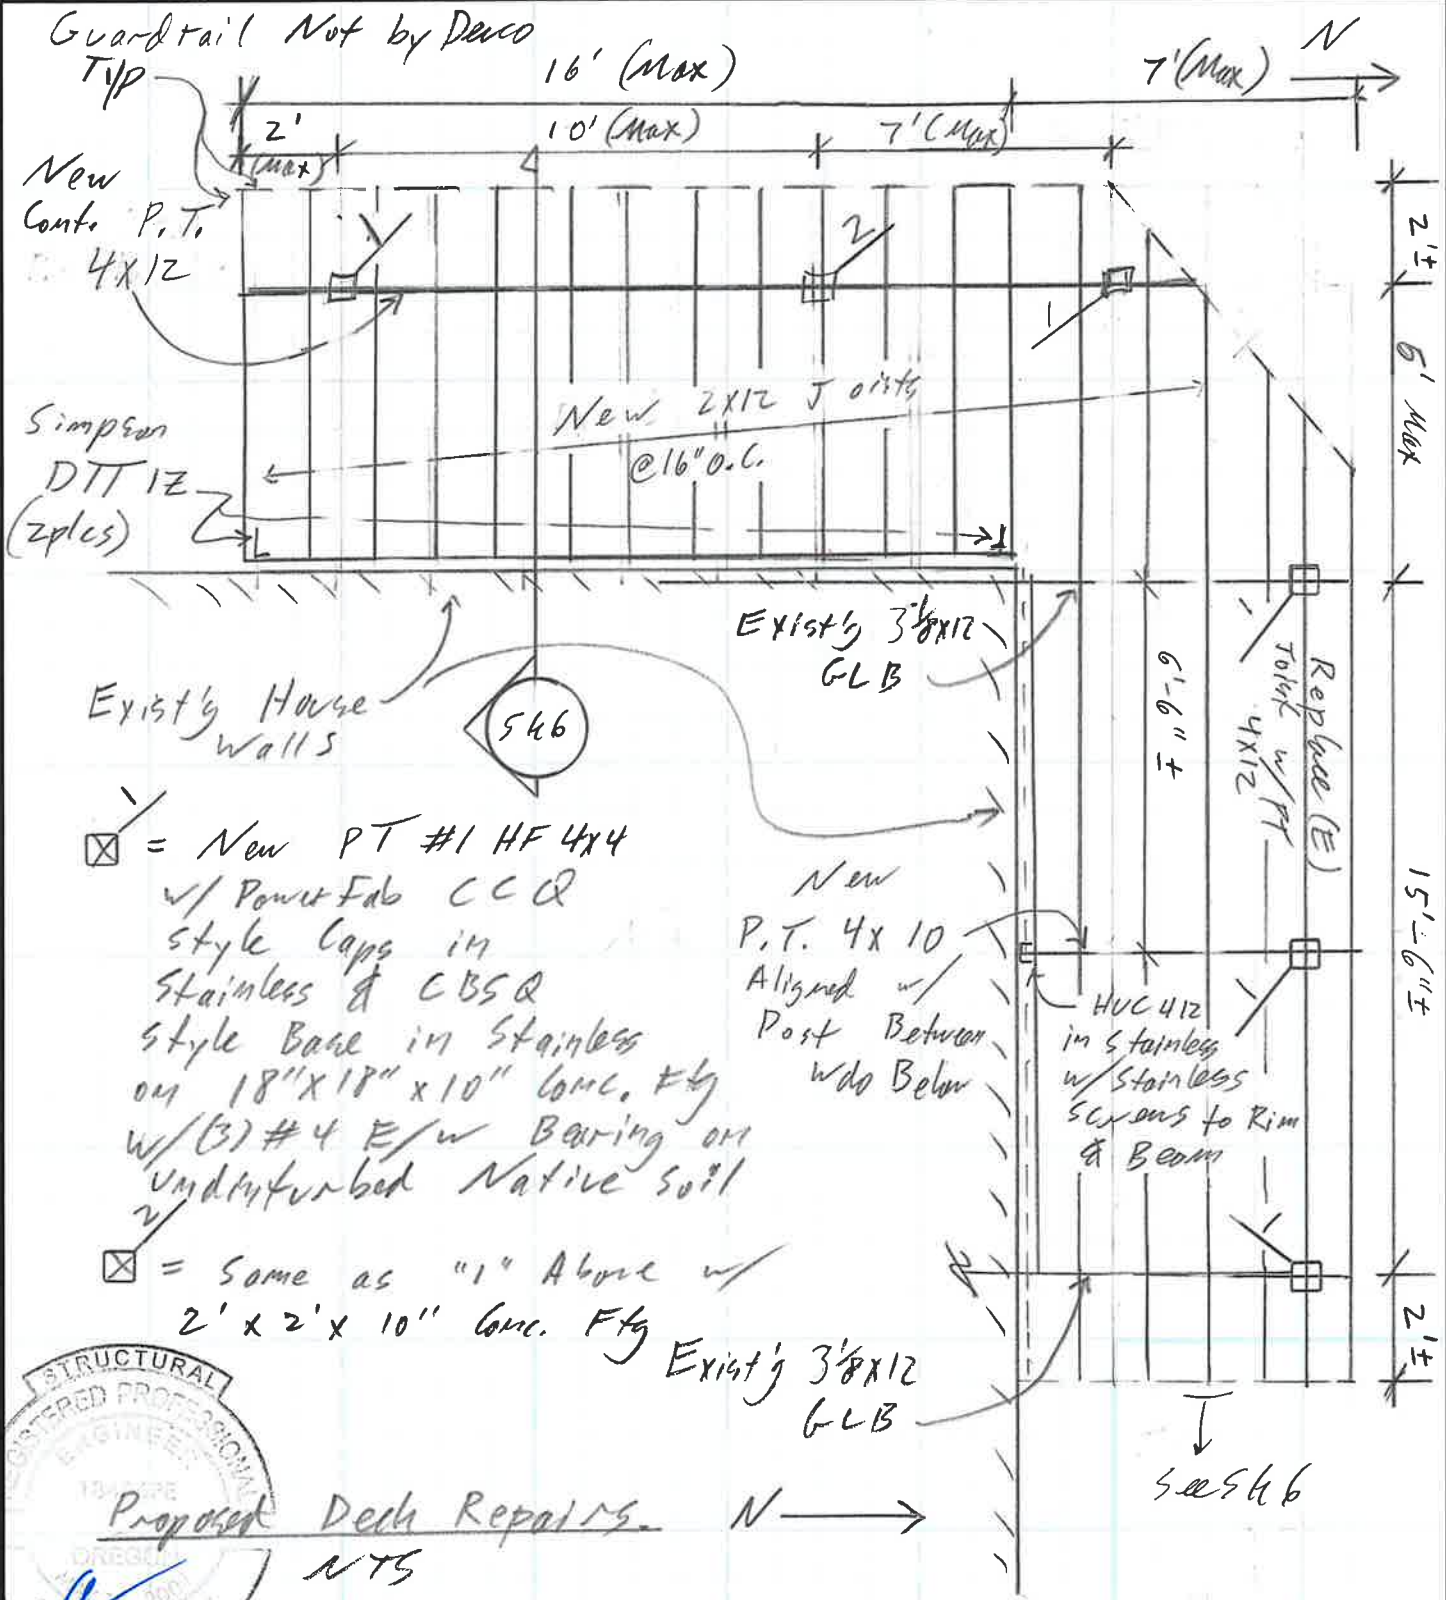 Guardrail Not by Deuco
Typ
16' (Max)
7' (Max)
N
2'
(Max)
10' (Max)
7' (Max)
New
Cont. P.T.
4x12
1
2
1
2'±
6' Max
New 2x12 Joists
@16" O.C.
Simpson
DTT1Z
(2plcs)
Exist'g 3⅛x12
GLB
Exist'g House
Walls
Sk6
6'-6"±
1
Replace (E)
Joist w/ PT
4x12
15'-6"±
1
= New PT #1 HF 4x4
w/ PowerFab CCQ
style Caps in
Stainless & CBSQ
style Base in Stainless
on 18"x18"x10" Conc. Ftg
w/(3) #4 E/W Bearing on
undisturbed Native Soil
New
P.T. 4x10
Aligned w/
Post Between
Wdo Below
HUC412
in Stainless
w/ Stainless
Screws to Rim
& Beam
1
1
2
= Same as "1" Above w/
2' x 2' x 10" Conc. Ftg
Exist'g 3⅛x12
GLB
2'±
See Sk6
STRUCTURAL
REGISTERED PROFESSIONAL
ENGINEER
OREGON
Proposed Deck Repairs
N
NTS